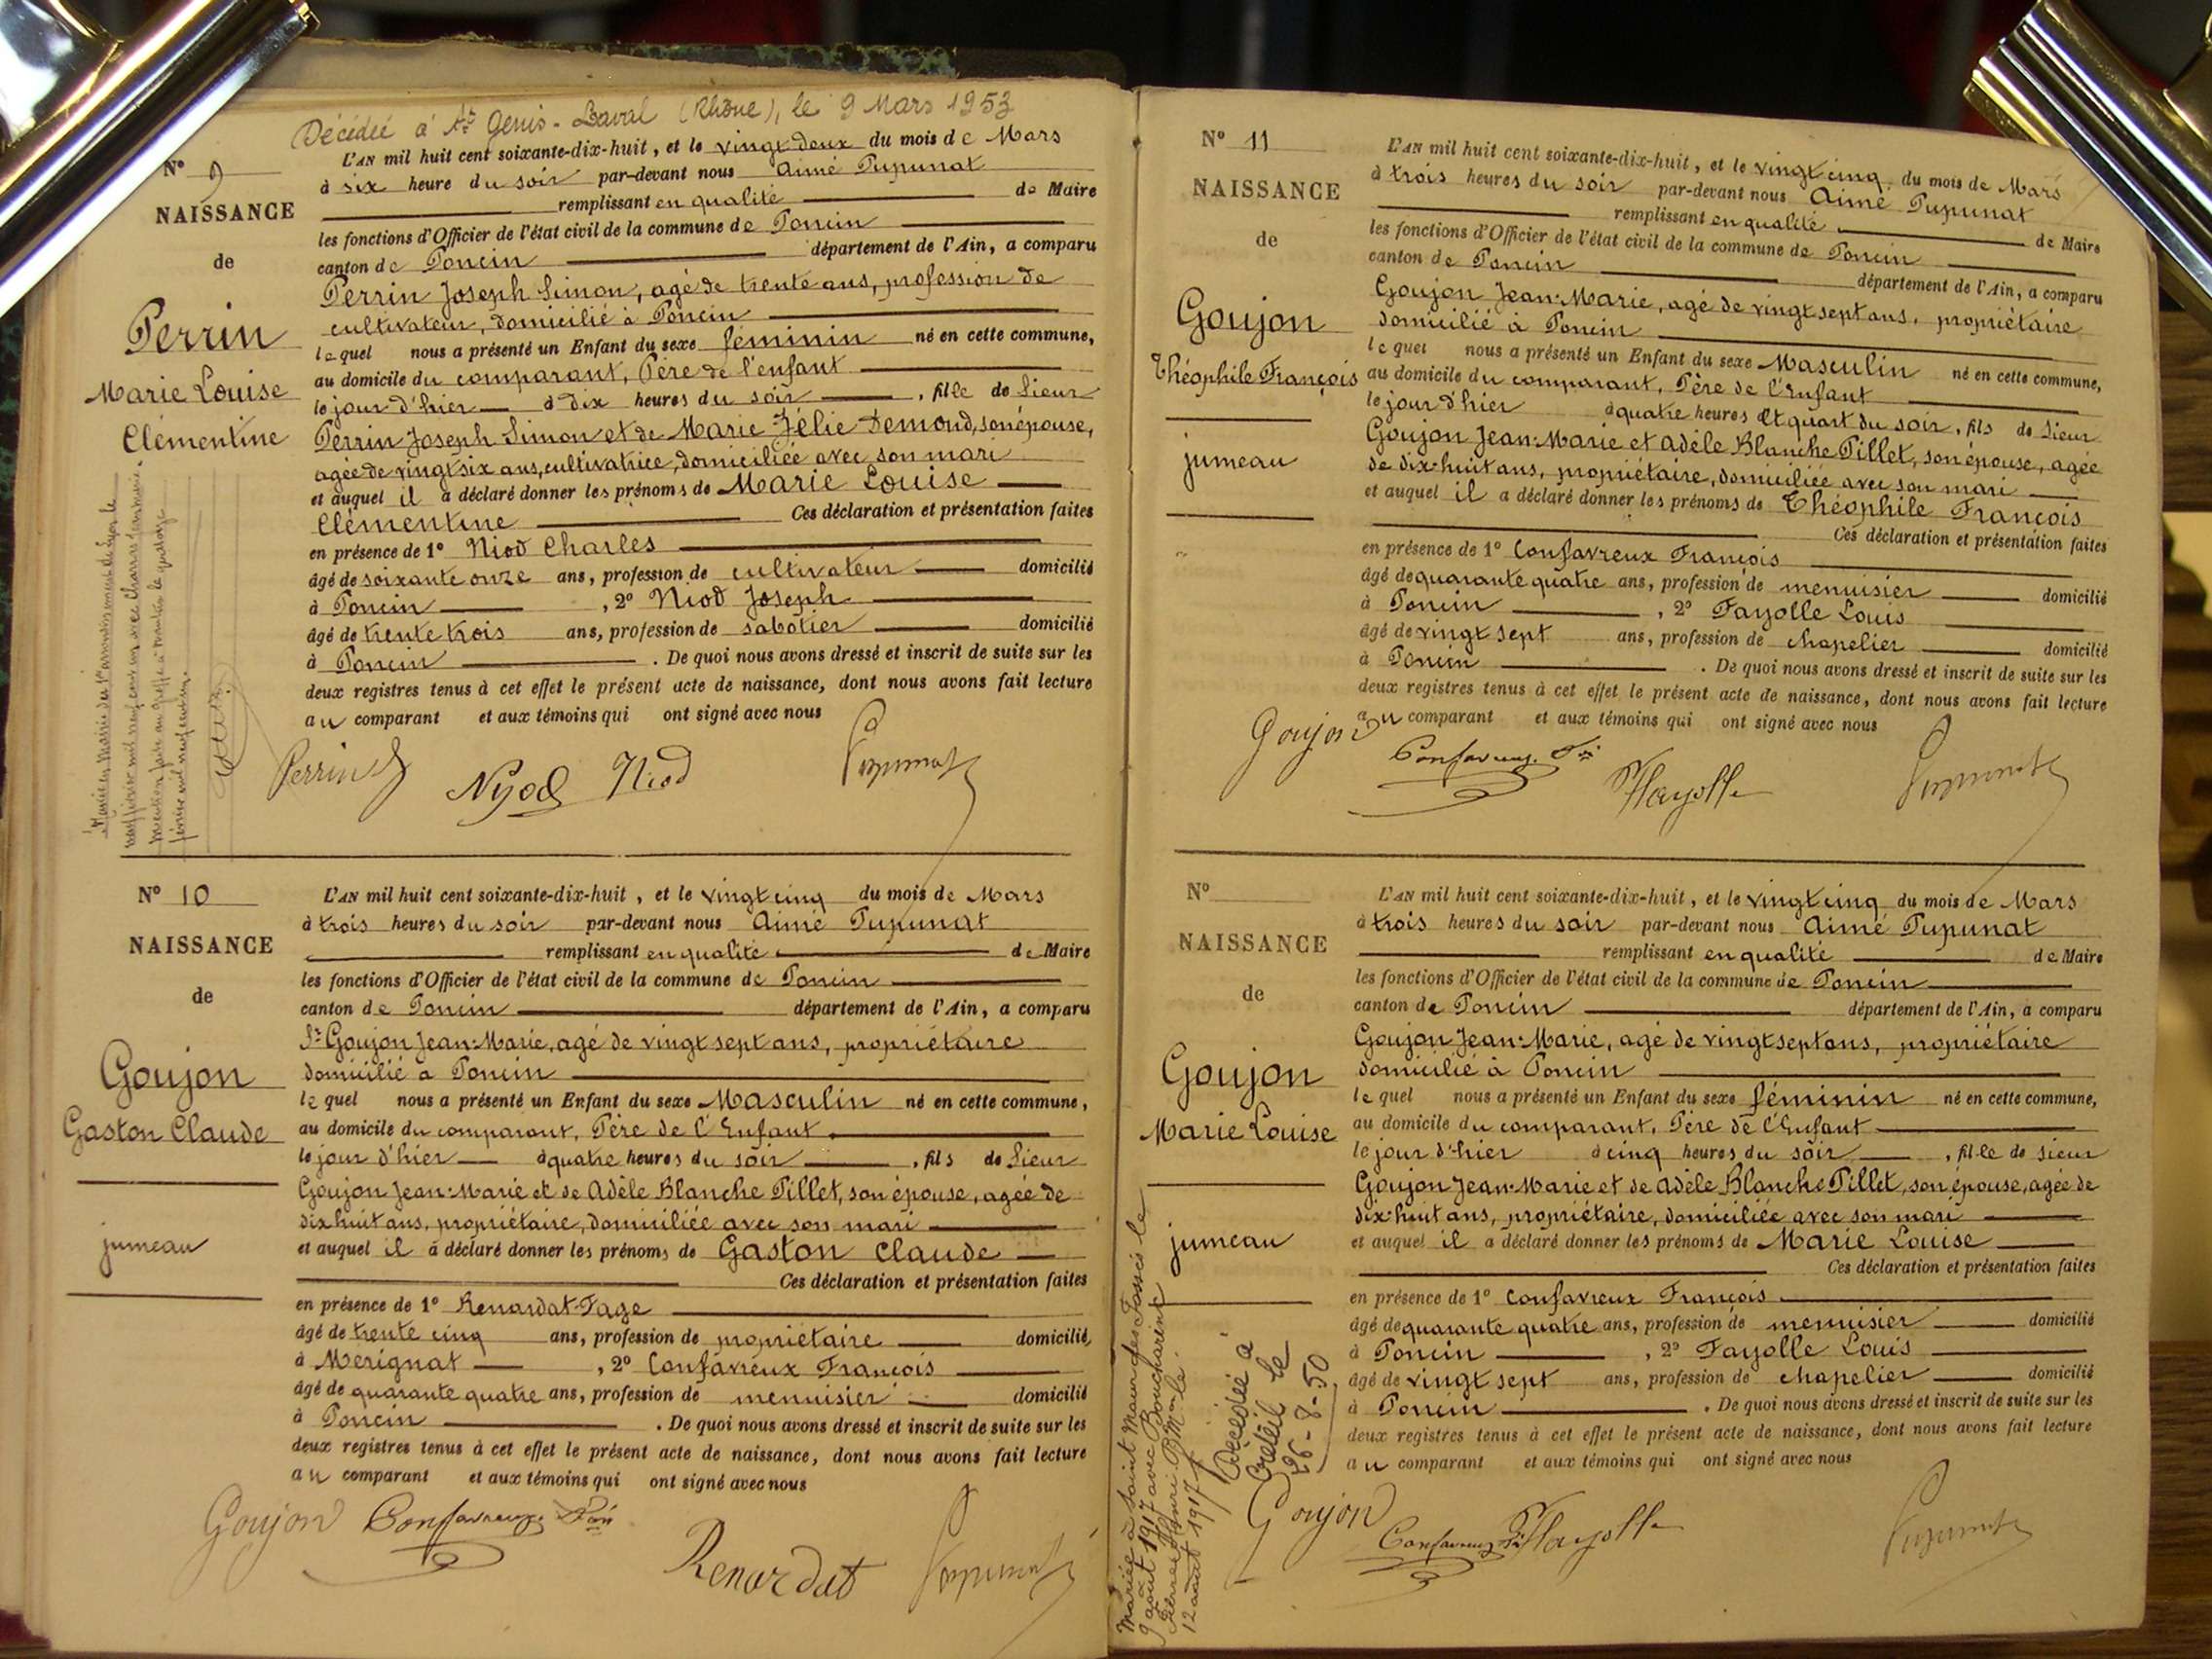 Décédée à St Genis-Laval (Rhône), le 9 Mars 1953
N° 9
NAISSANCE
de
Perrin
Marie Louise
Clémentine
L'AN mil huit cent soixante-dix-huit, et le vingt deux du mois de Mars
à six heure du soir par-devant nous Aimé Pupunat
remplissant en qualité de Maire
les fonctions d'Officier de l'état civil de la commune de Poncin
canton de Poncin département de l'Ain, a comparu
Perrin Joseph Simon, agé de trente ans, profession de
cultivateur, domicilié à Poncin
lequel nous a présenté un Enfant du sexe féminin né en cette commune,
au domicile du comparant, Père de l'enfant
le jour d'hier à dix heures du soir, fille de Sieur
Perrin Joseph Simon et de Marie Félie Demond, son épouse,
agée de vingt six ans, cultivatrice, domiciliée avec son mari
et auquel il a déclaré donner les prénoms de Marie Louise
Clémentine Ces déclaration et présentation faites
en présence de 1° Niod Charles
âgé de soixante onze ans, profession de cultivateur domicilié
à Poncin, 2° Niod Joseph
âgé de trente trois ans, profession de sabotier domicilié
à Poncin. De quoi nous avons dressé et inscrit de suite sur les
deux registres tenus à cet effet le présent acte de naissance, dont nous avons fait lecture
au comparant et aux témoins qui ont signé avec nous
Perrin Nyod Niod Pupunat
N° 10
NAISSANCE
de
Goujon
Gaston Claude
jumeau
L'AN mil huit cent soixante-dix-huit, et le vingt cinq du mois de Mars
à trois heures du soir par-devant nous Aimé Pupunat
remplissant en qualité de Maire
les fonctions d'Officier de l'état civil de la commune de Poncin
canton de Poncin département de l'Ain, a comparu
Sr Goujon Jean-Marie, agé de vingt sept ans, propriétaire
domicilié à Poncin
lequel nous a présenté un Enfant du sexe Masculin né en cette commune,
au domicile du comparant, Père de l'Enfant
le jour d'hier à quatre heures du soir, fils de Sieur
Goujon Jean-Marie et de Adèle Blanche Pillet, son épouse, agée de
dix huit ans, propriétaire, domiciliée avec son mari
et auquel il a déclaré donner les prénoms de Gaston Claude
Ces déclaration et présentation faites
en présence de 1° Renardat-Fage
âgé de trente cinq ans, profession de propriétaire domicilié
à Merignat, 2° Confavreux François
âgé de quarante quatre ans, profession de menuisier domicilié
à Poncin. De quoi nous avons dressé et inscrit de suite sur les
deux registres tenus à cet effet le présent acte de naissance, dont nous avons fait lecture
au comparant et aux témoins qui ont signé avec nous
Goujon Confavreux Renardat Pupunat
N° 11
NAISSANCE
de
Goujon
Théophile François
jumeau
L'AN mil huit cent soixante-dix-huit, et le vingt cinq du mois de Mars
à trois heures du soir par-devant nous Aimé Pupunat
remplissant en qualité de Maire
les fonctions d'Officier de l'état civil de la commune de Poncin
canton de Poncin département de l'Ain, a comparu
Goujon Jean-Marie, agé de vingt sept ans, propriétaire
domicilié à Poncin
lequel nous a présenté un Enfant du sexe Masculin né en cette commune,
au domicile du comparant, Père de l'Enfant
le jour d'hier à quatre heures et quart du soir, fils de Sieur
Goujon Jean-Marie et Adèle Blanche Pillet, son épouse, agée
de dix-huit ans, propriétaire, domiciliée avec son mari
et auquel il a déclaré donner les prénoms de Théophile François
Ces déclaration et présentation faites
en présence de 1° Confavreux François
âgé de quarante quatre ans, profession de menuisier domicilié
à Poncin, 2° Fayolle Louis
âgé de vingt sept ans, profession de chapelier domicilié
à Poncin. De quoi nous avons dressé et inscrit de suite sur les
deux registres tenus à cet effet le présent acte de naissance, dont nous avons fait lecture
au comparant et aux témoins qui ont signé avec nous
Goujon Confavreux Fayolle Pupunat
N°
NAISSANCE
de
Goujon
Marie Louise
jumeau
Mariée à Saint Maur des Fossés le
9 août 1917 avec Boucharent
Pierre Henri
12 août 1917
Décédée à
Créteil le
26-8-50
L'AN mil huit cent soixante-dix-huit, et le vingt cinq du mois de Mars
à trois heures du soir par-devant nous Aimé Pupunat
remplissant en qualité de Maire
les fonctions d'Officier de l'état civil de la commune de Poncin
canton de Poncin département de l'Ain, a comparu
Goujon Jean-Marie, agé de vingt sept ans, propriétaire
domicilié à Poncin
lequel nous a présenté un Enfant du sexe féminin né en cette commune,
au domicile du comparant, Père de l'Enfant
le jour d'hier à cinq heures du soir, fille de Sieur
Goujon Jean-Marie et de Adèle Blanche Pillet, son épouse, agée de
dix-huit ans, propriétaire, domiciliée avec son mari
et auquel il a déclaré donner les prénoms de Marie Louise
Ces déclaration et présentation faites
en présence de 1° Confavreux François
âgé de quarante quatre ans, profession de menuisier domicilié
à Poncin, 2° Fayolle Louis
âgé de vingt sept ans, profession de chapelier domicilié
à Poncin. De quoi nous avons dressé et inscrit de suite sur les
deux registres tenus à cet effet le présent acte de naissance, dont nous avons fait lecture
au comparant et aux témoins qui ont signé avec nous
Goujon Confavreux Fayolle Pupunat